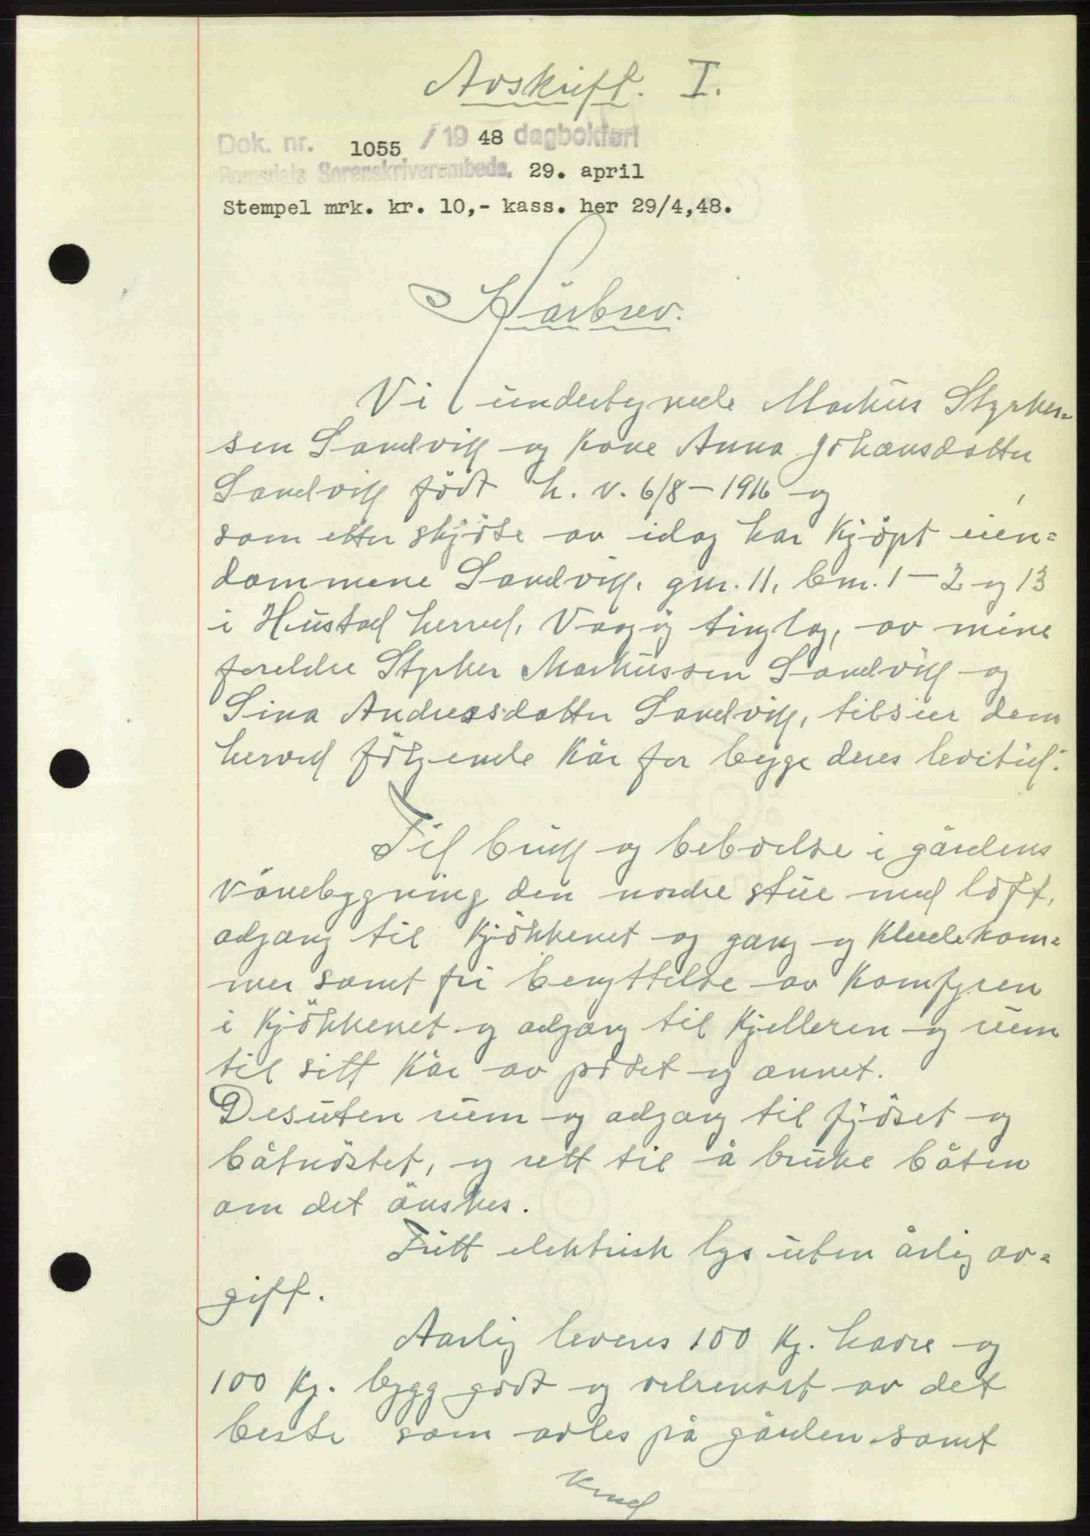 Avskrift. I.
Dok. nr. 1055 / 19 48 dagbokført
Romsdals Sorenskriverembede. 29. april
Stempel mrk. kr. 10,- kass. her 29/4,48.
Kårbrev.
Vi undertegnede Markus Styrker=
sen Sandvik og kone Anna Johansdatter
Sandvik født h. v. 6/8 - 1916 og
som etter skjöte av idag har kjöpt eien=
dommene Sandvik, gnr. 11, bnr. 1 - 2 og 13
i Hustad herred, Vågöy tinglag, av mine
foreldre Styrker Markussen Sandvik og
Sina Andreasdatter Sandvik, tilsier dem
herved fölgende kår for begge deres levitid:
Til bruk og beboelse i gårdens
vånebygning den nordre stue med loft,
adgang til kjökkenet og gang og kledekam=
mer samt fri benyttelse av komfyren
i kjökkenet og adgang til kjelleren og rum
til sitt kår av potet og annet.
Desuten rum og adgang til fjöset og
båtnöstet, og rett til å bruke båten
om det önskes.
Fritt elektrisk lys uten årlig av=
gift.
Aarlig leveres 100 kg. havre og
100 kg. bygg godt og velrenset av det
beste som avles på gården samt